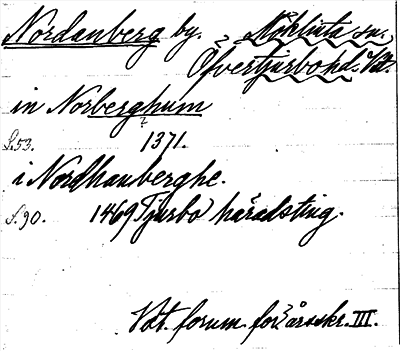 Nordanberg by. Möklinta sn.,
Öfvertjurbo hd. Vtl.
in Norberghum
S. 53. 1371.
i Nordhanberghe.
S. 90. 1469 Tjurbo häradsting.
Vdt. forum. för. årsskr. III.